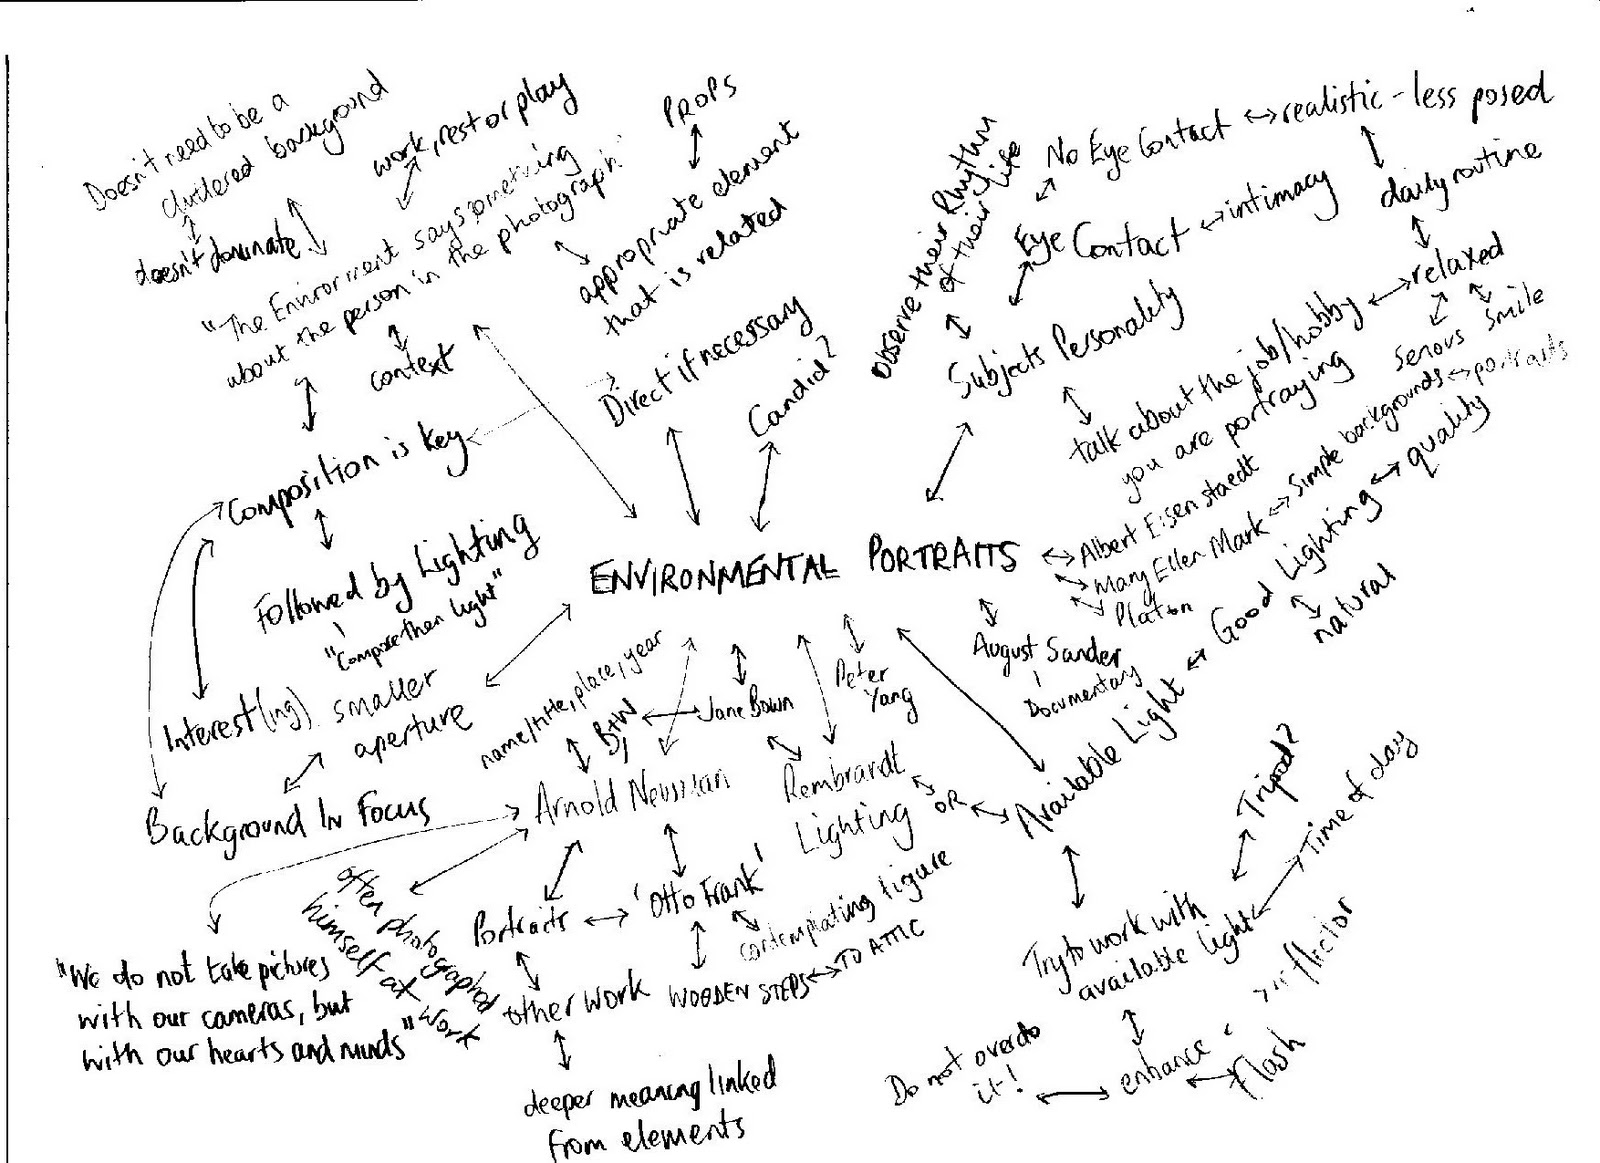 Doesn't need to be a
cluttered background
doesn't dominate
work, rest or play
PROPS
"The Enviroment says something
about the person in the photograph."
context
appropriate element
that is related
Direct if necessary
Candid?
Observe their Rhythm
of their life
No Eye Contact
realistic - less posed
Eye Contact
intimacy
daily routine
relaxed
Serious
Smile
Subjects Personality
talk about the job/hobby
you are portraying
Composition is key
Followed by Lighting
"Compose then light"
Interest(ing)
smaller
aperture
Background In Focus
ENVIRONMENTAL PORTRAITS
Albert Eisenstaedt
Mary Ellen Mark
Simple backgrounds
portraits
Platon
August Sander
Documentary
Good Lighting
quality
natural
Available Light
name/title, place, year
B+W
Jane Bown
Peter
Yang
Arnold Newman
Rembrandt
Lighting
OR
Portraits
'Otto Frank'
contemplating figure
WOODEN STEPS
TO ATTIC
other work
deeper meaning linked
from elements
often photographed
himself at work
"We do not take pictures
with our cameras, but
with our hearts and minds"
Try to work with
available light
Tripod?
Time of day
enhance
Flash
Do not overdo
it!